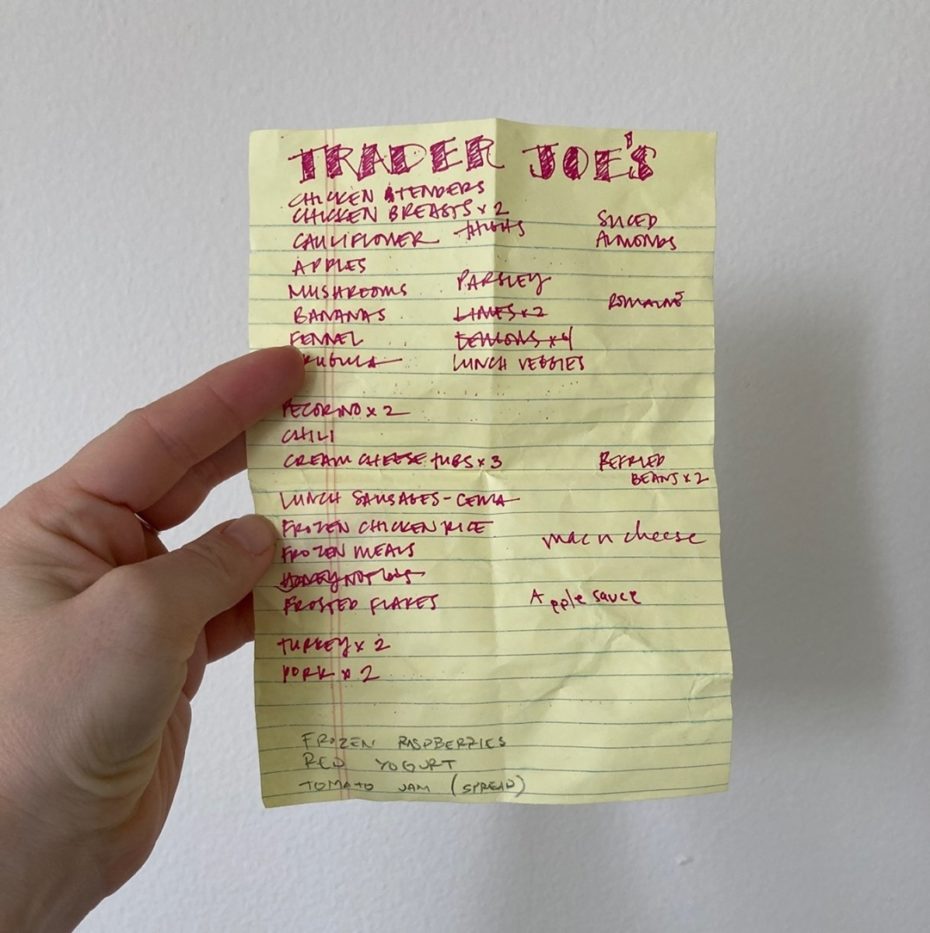 TRADER JOE'S
CHICKEN TENDERS
CHICKEN BREASTS x 2
THIGHS
SLICED
ALMONDS
CAULIFLOWER
APPLES
MUSHROOMS
PARSLEY
ROMAINE
BANANAS
LIMES x 2
FENNEL
LEMONS x 4
LUNCH VEGGIES
PECORINO x 2
CHILI
CREAM CHEESE TUBS x 3
REFRIED
BEANS x 2
LUNCH SAUSAGES -
FROZEN CHICKEN RICE
mac n cheese
FROZEN MEALS
HONEY NUT
FROSTED FLAKES
Apple sauce
TURKEY x 2
PORK x 2
FROZEN RASPBERRIES
RED YOGURT
TOMATO JAM (SPREAD)